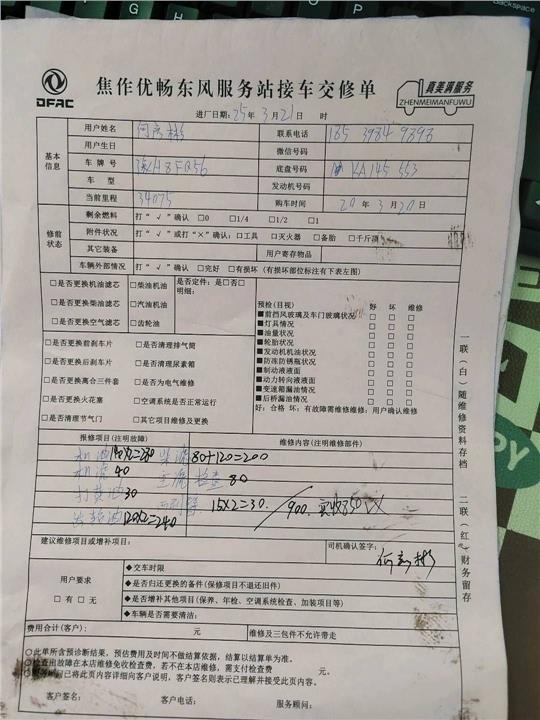 Backspace
DFAC
焦作优畅东风服务站接车交修单
真美满服务
ZHENMEIMANFUWU
进厂日期:25年3月21日 时
基本信息
用户姓名 何彦彬 联系电话
用户生日 微信号码
车牌号 底盘号码 KA145553
车型 发动机号码
当前里程 34075 购车时间 20年3月20日
修前状态
剩余燃料 打“√”确认 □0 □1/4 □1/2 □1
附件状况 打“√”或打“×”确认:□工具 □灭火器 □备胎 □千斤顶
其它装备 用户寄存物品
车辆外部情况 打“√”确认 □完好 □有损坏(有损坏部位标注有下表左图)
□是否更换机油滤芯 □柴油机油 是否定件:是□否□
明细:
□是否更换柴油滤芯 □汽油机油
□是否更换空气滤芯 □齿轮油
□是否更换前刹车片 □是否清理排气筒
□是否更换后刹车片 □是否清理尿素箱
□是否更换离合三件套 □是否为电气维修
□是否更换火花塞 □空调系统是否正常运行
□是否清理节气门 □其它项目维修及更换
预检(目视) 好 坏 维修
■前挡风玻璃及车门玻璃状况 □ □ □
■灯具情况 □ □ □
■油量状况 □ □ □
■轮胎状况 □ □ □
■发动机机油状况 □ □ □
■防冻防锈瓶状况 □ □ □
■制动液液面 □ □ □
■动力转向液液面 □ □ □
■变速箱漏油情况 □ □ □
■后桥漏油情况 □ □ □
好:合格 坏:有故障需维修维修:用户确认维修
报修项目(注明故障) 维修内容(注明维修部件)
机油140X2=280 柴滤80+120=200
机滤40 空滤 检查 80
打黄油30 15X2=30 900. 实收850
齿轮油120X2=240
建议维修项目或增补项目: 司机确认签字:
何彦彬
用户要求
□有□无
◆交车时限
◆是否归还更换的备件(保修项目不退还旧件)
◆是否增补其他项目(保养、年检、空调系统检查、加装项目等)
◆车辆是否需要清洁:
费用合计(客户): 元 维修及三包件不允许带走
○此单所含预诊断结果,预估费用及时间不做结算依据,结算以结算单为准。
○检查出故障在本店维修免收检查费,若不在本店维修,需支付检查费 元。
已将此页内容详细向客户说明,客户签名则表示已理解并接受此页内容。
客户签名: 客户电话: 服务顾问:
一联(白)随维修资料存档
二联(红)财务留存